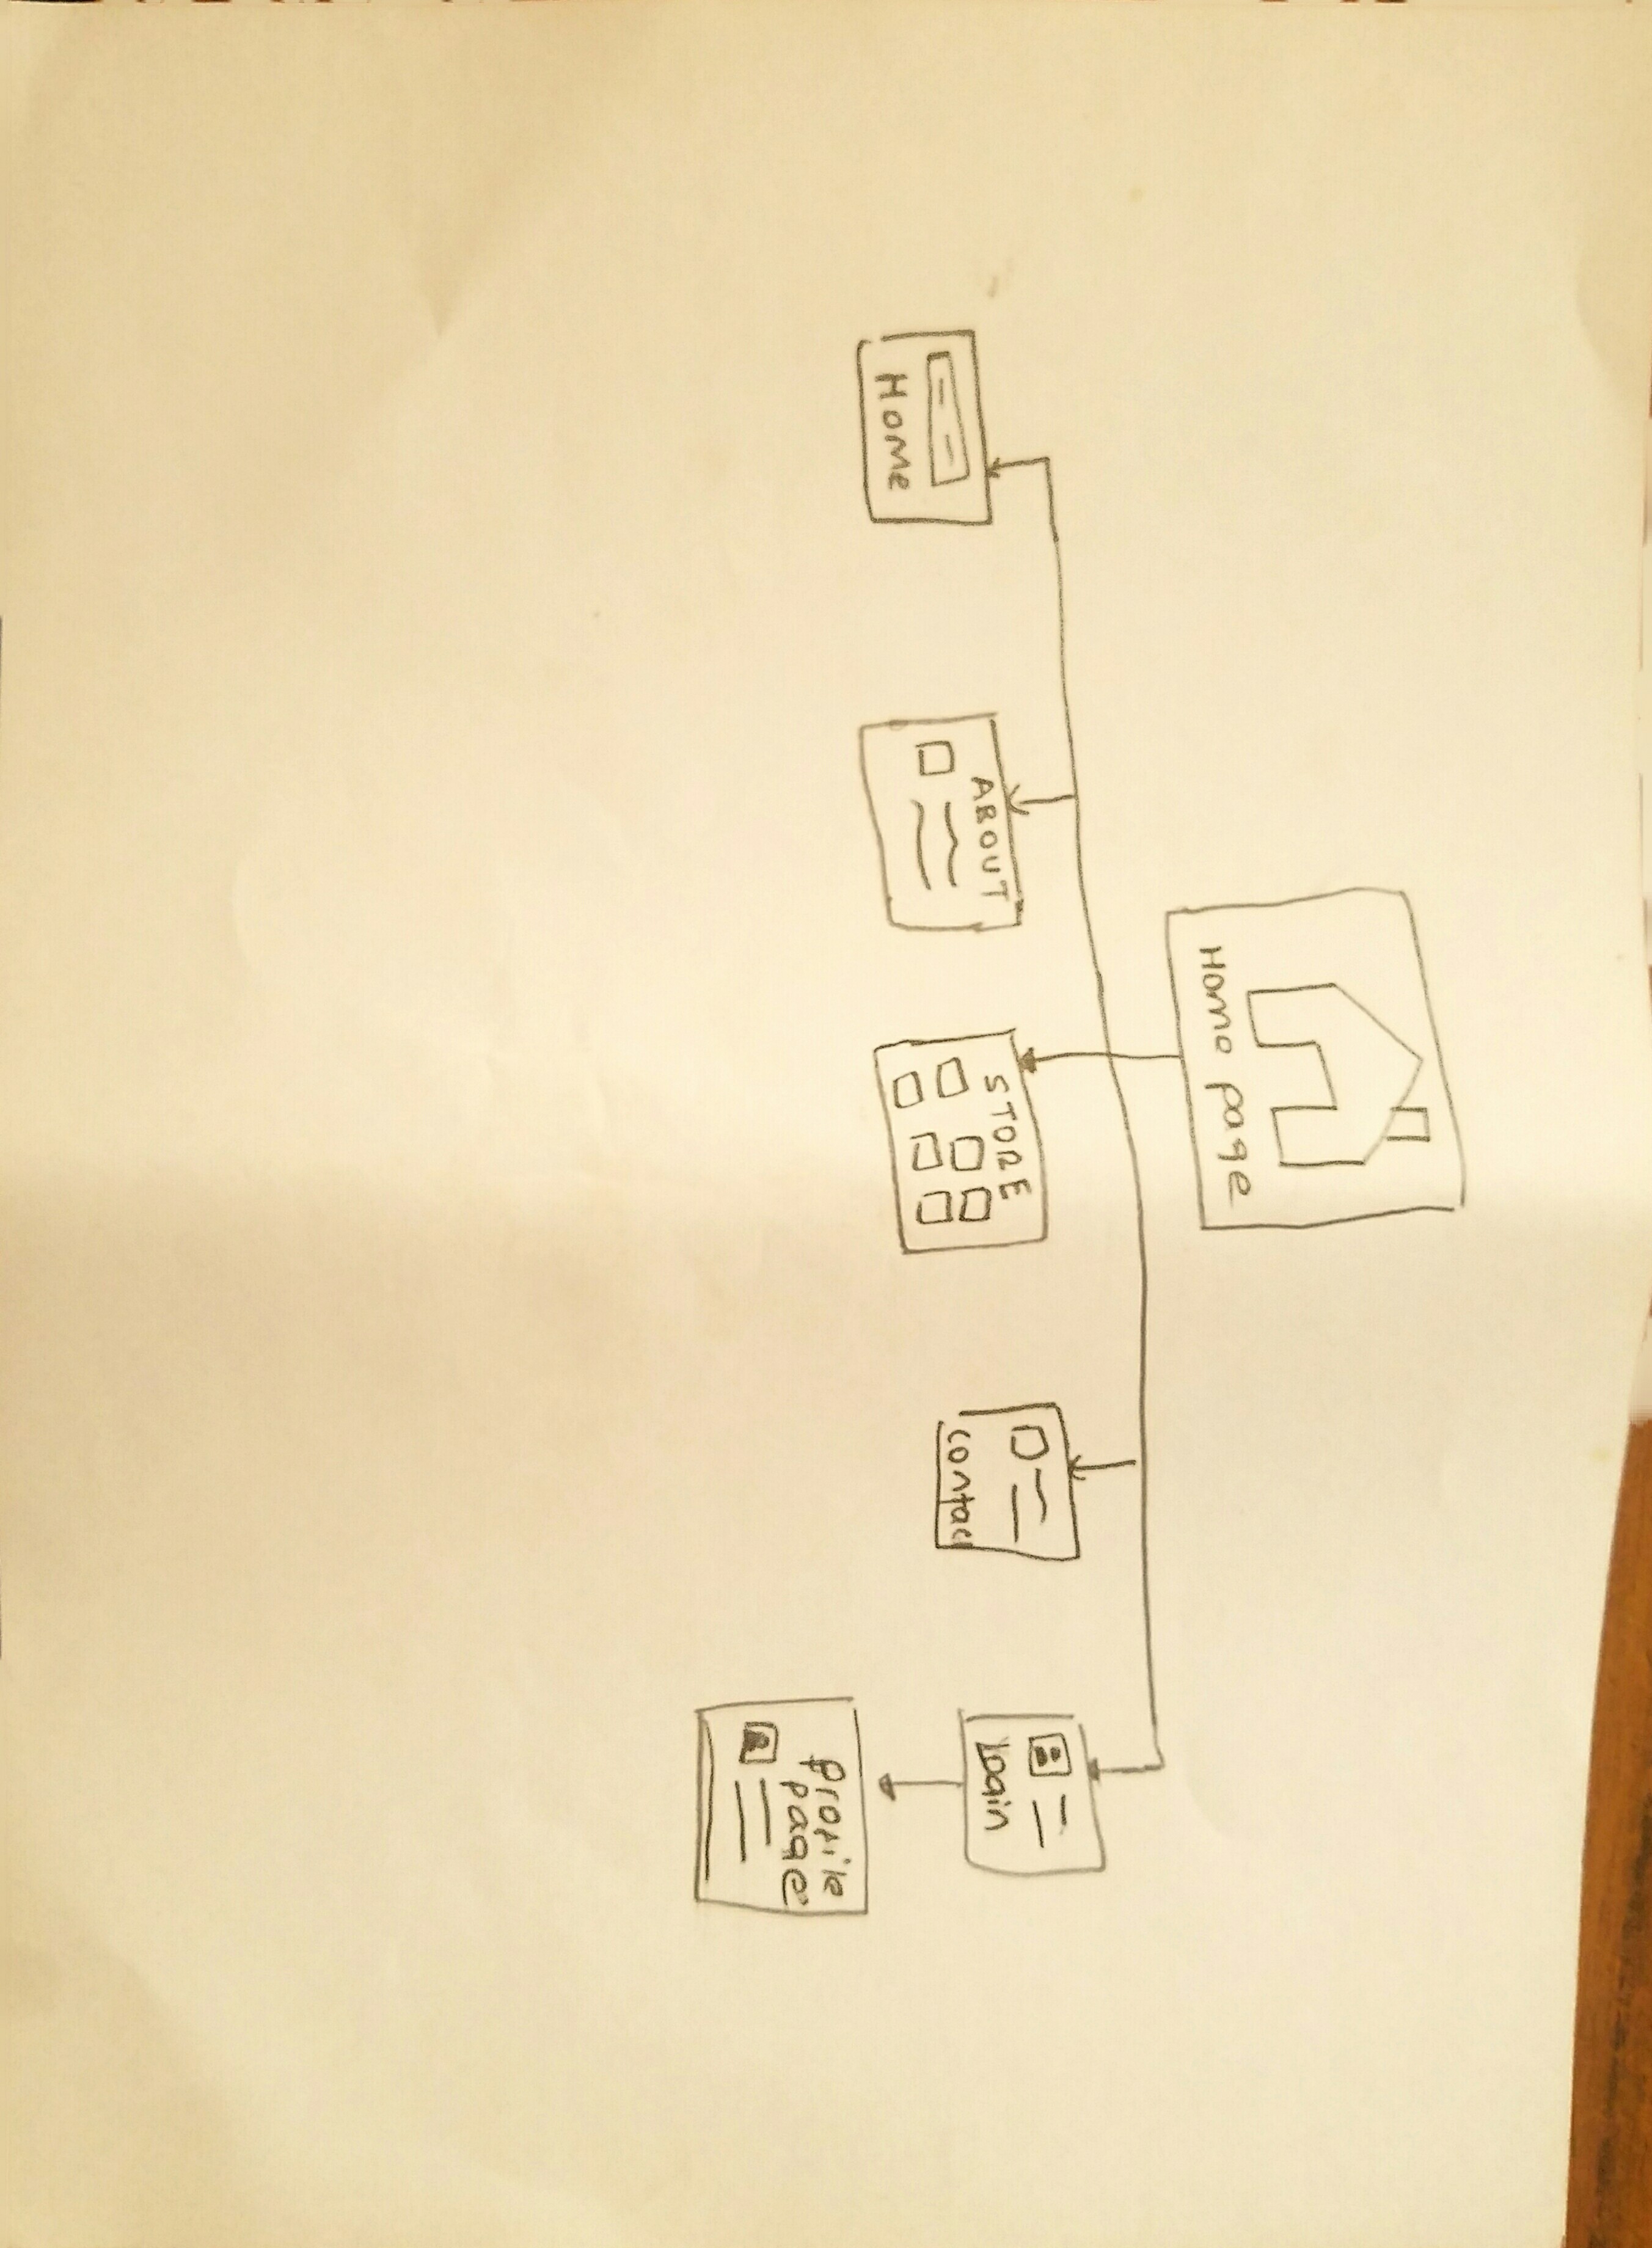 Home page
Home
ABOUT
STORE
contac
Login
profile
page